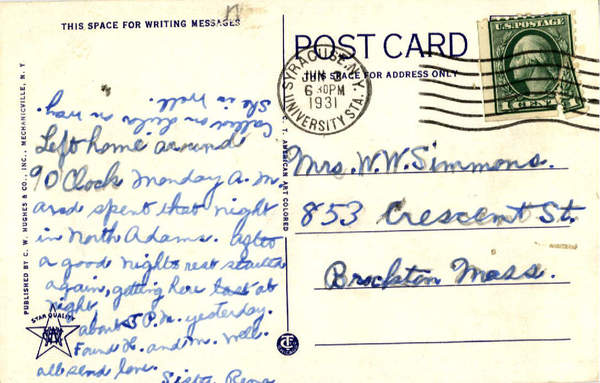 THIS SPACE FOR WRITING MESSAGES
POST CARD
THIS SPACE FOR ADDRESS ONLY
SYRACUSE, N.Y.
JUN 3
6 30PM
1931
UNIVERSITY STA.
U.S. POSTAGE
1 CENT 1
She is well.
Called on Lila on way.
Left home around
9 O Clock Monday A.M.
and spent that night
in North Adams. After
a good nights rest started
again, getting here last
night
about 5 P.M. yesterday.
Found H. and M. well.
all send love.
Sister Rena
Mrs. W.W. Simmons.
853 Crescent St.
Brockton Mass.
PUBLISHED BY C. W. HUGHES & CO., INC., MECHANICVILLE, N. Y.
C. T. AMERICAN ART COLORED
STAR QUALITY